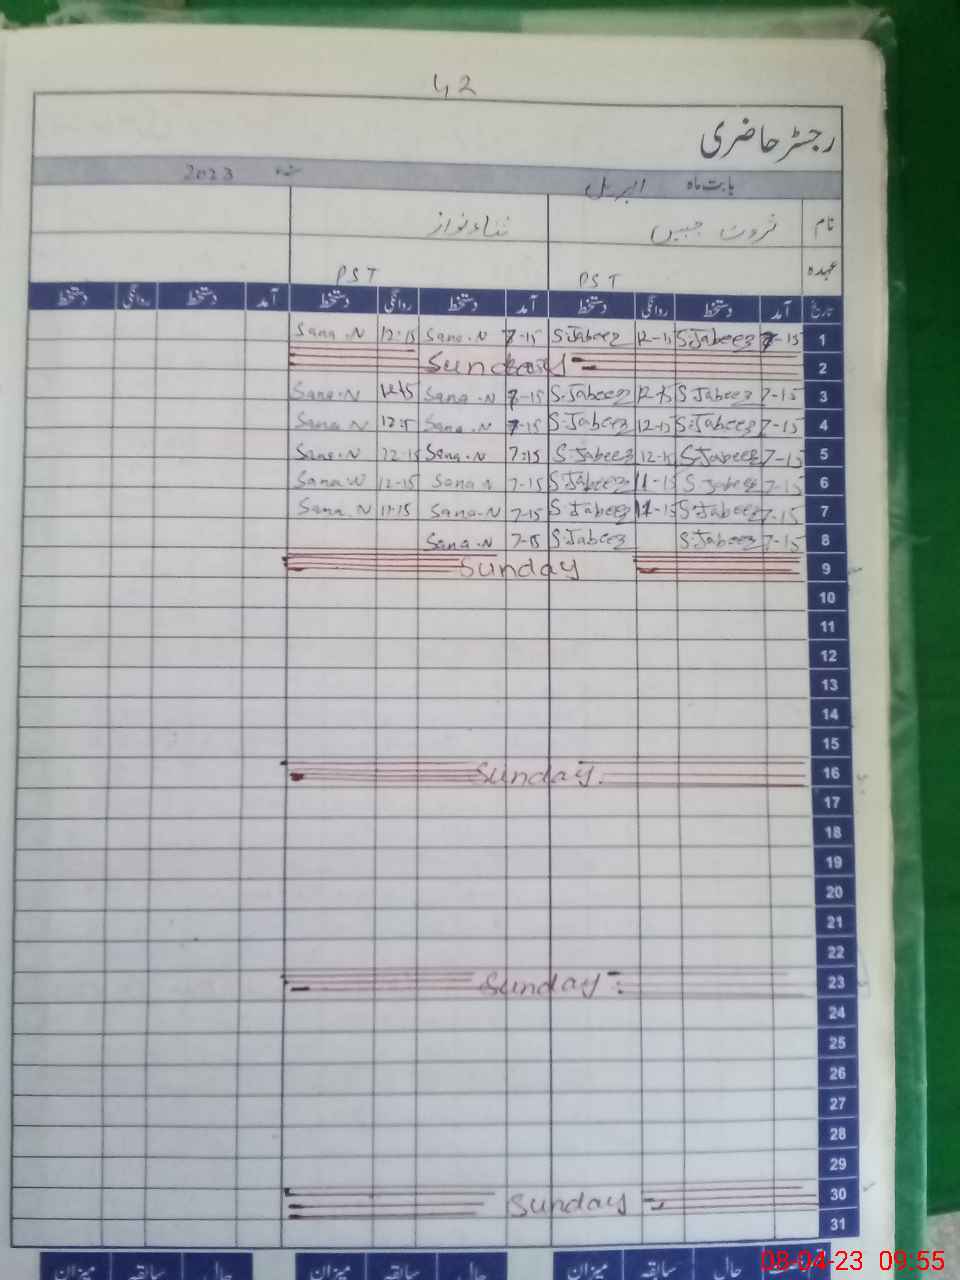 42
رجسٹر حاضری
بابت ماہ اپریل سنہ 2023
نام ثروت جبیں ثناء نواز
عہدہ PST PST
تاریخ آمد دستخط روانگی دستخط آمد دستخط روانگی دستخط آمد دستخط روانگی دستخط
1 7-15 S.Jabeez 12-15 S.Jabeez 7-15 Sana.N 12-15 Sana.N
2 Sunday
3 7-15 S.Jabeez 12-15 S.Jabeez 7-15 Sana.N 12-15 Sana.N
4 7-15 S.Jabeez 12-15 S.Jabeez 7-15 Sana.N 12-15 Sana N
5 7-15 S.Jabeez 12-15 S.Jabeez 7:15 Sana.N 12-15 Sana.N
6 7-15 S.Jabeez 11-15 S.Jabeez 7-15 Sana N 12-15 Sana N
7 7-15 S.Jabeez 11-15 S.Jabeez 7-15 Sana-N 11-15 Sana.N
8 7-15 S.Jabeez S.Jabeez 7-15 Sana-N
9 Sunday
10
11
12
13
14
15
16 Sunday.
17
18
19
20
21
22
23 Sunday
24
25
26
27
28
29
30 Sunday
31
حال سابقہ میزان حال سابقہ میزان حال سابقہ میزان
08-04-23 09:55